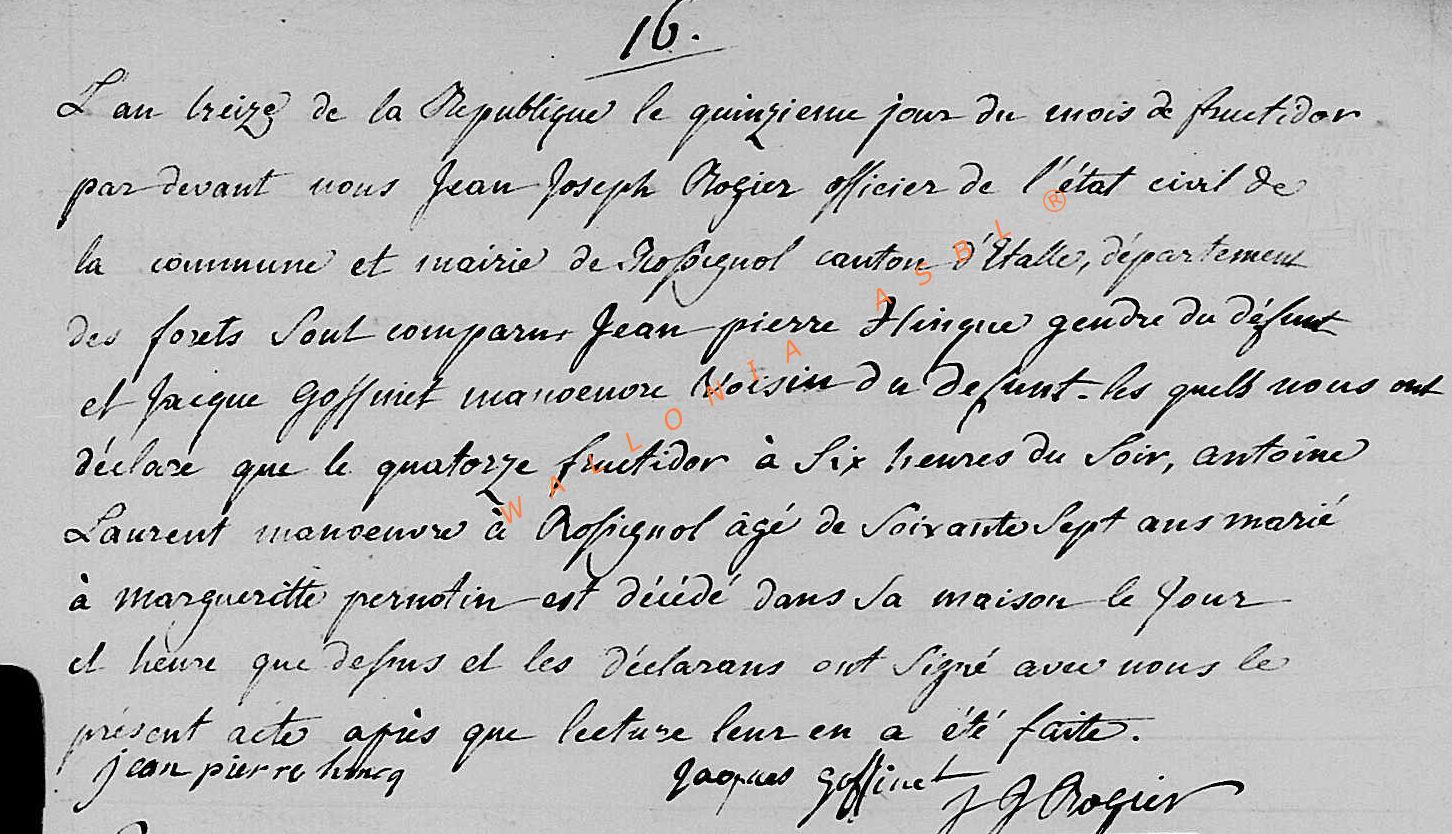 16.
L'an treize de la Republique le quinzieme jour du mois de fructidor
par devant nous Jean Joseph Rogier officier de l'état civil de
la commune et mairie de Rossignol canton d'Etalle, département
des forets sont comparus Jean pierre Hinque gendre du défunt
et Jacque Goffinet manoeuvre voisin du defunt. les quels nous ont
déclare que le quatorze fructidor à six heures du soir, antoine
Laurent manoeuvre à Rossignol âgé de soixante sept ans marié
à margueritte pernotin est décédé dans sa maison le jour
et heure que dessus et les déclarans ont signé avec nous le
présent acte après que lecture leur en a été faite.
jean pierre hincq Jaques Goffinet J J Rogier
WALLONIA ASBL ®